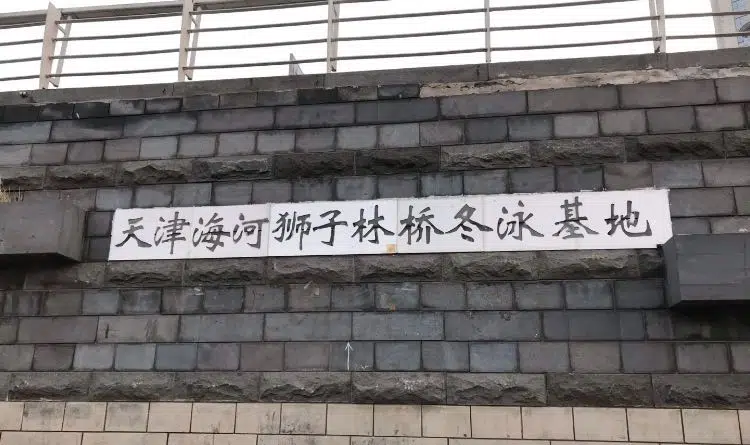 天津海河狮子林桥冬泳基地